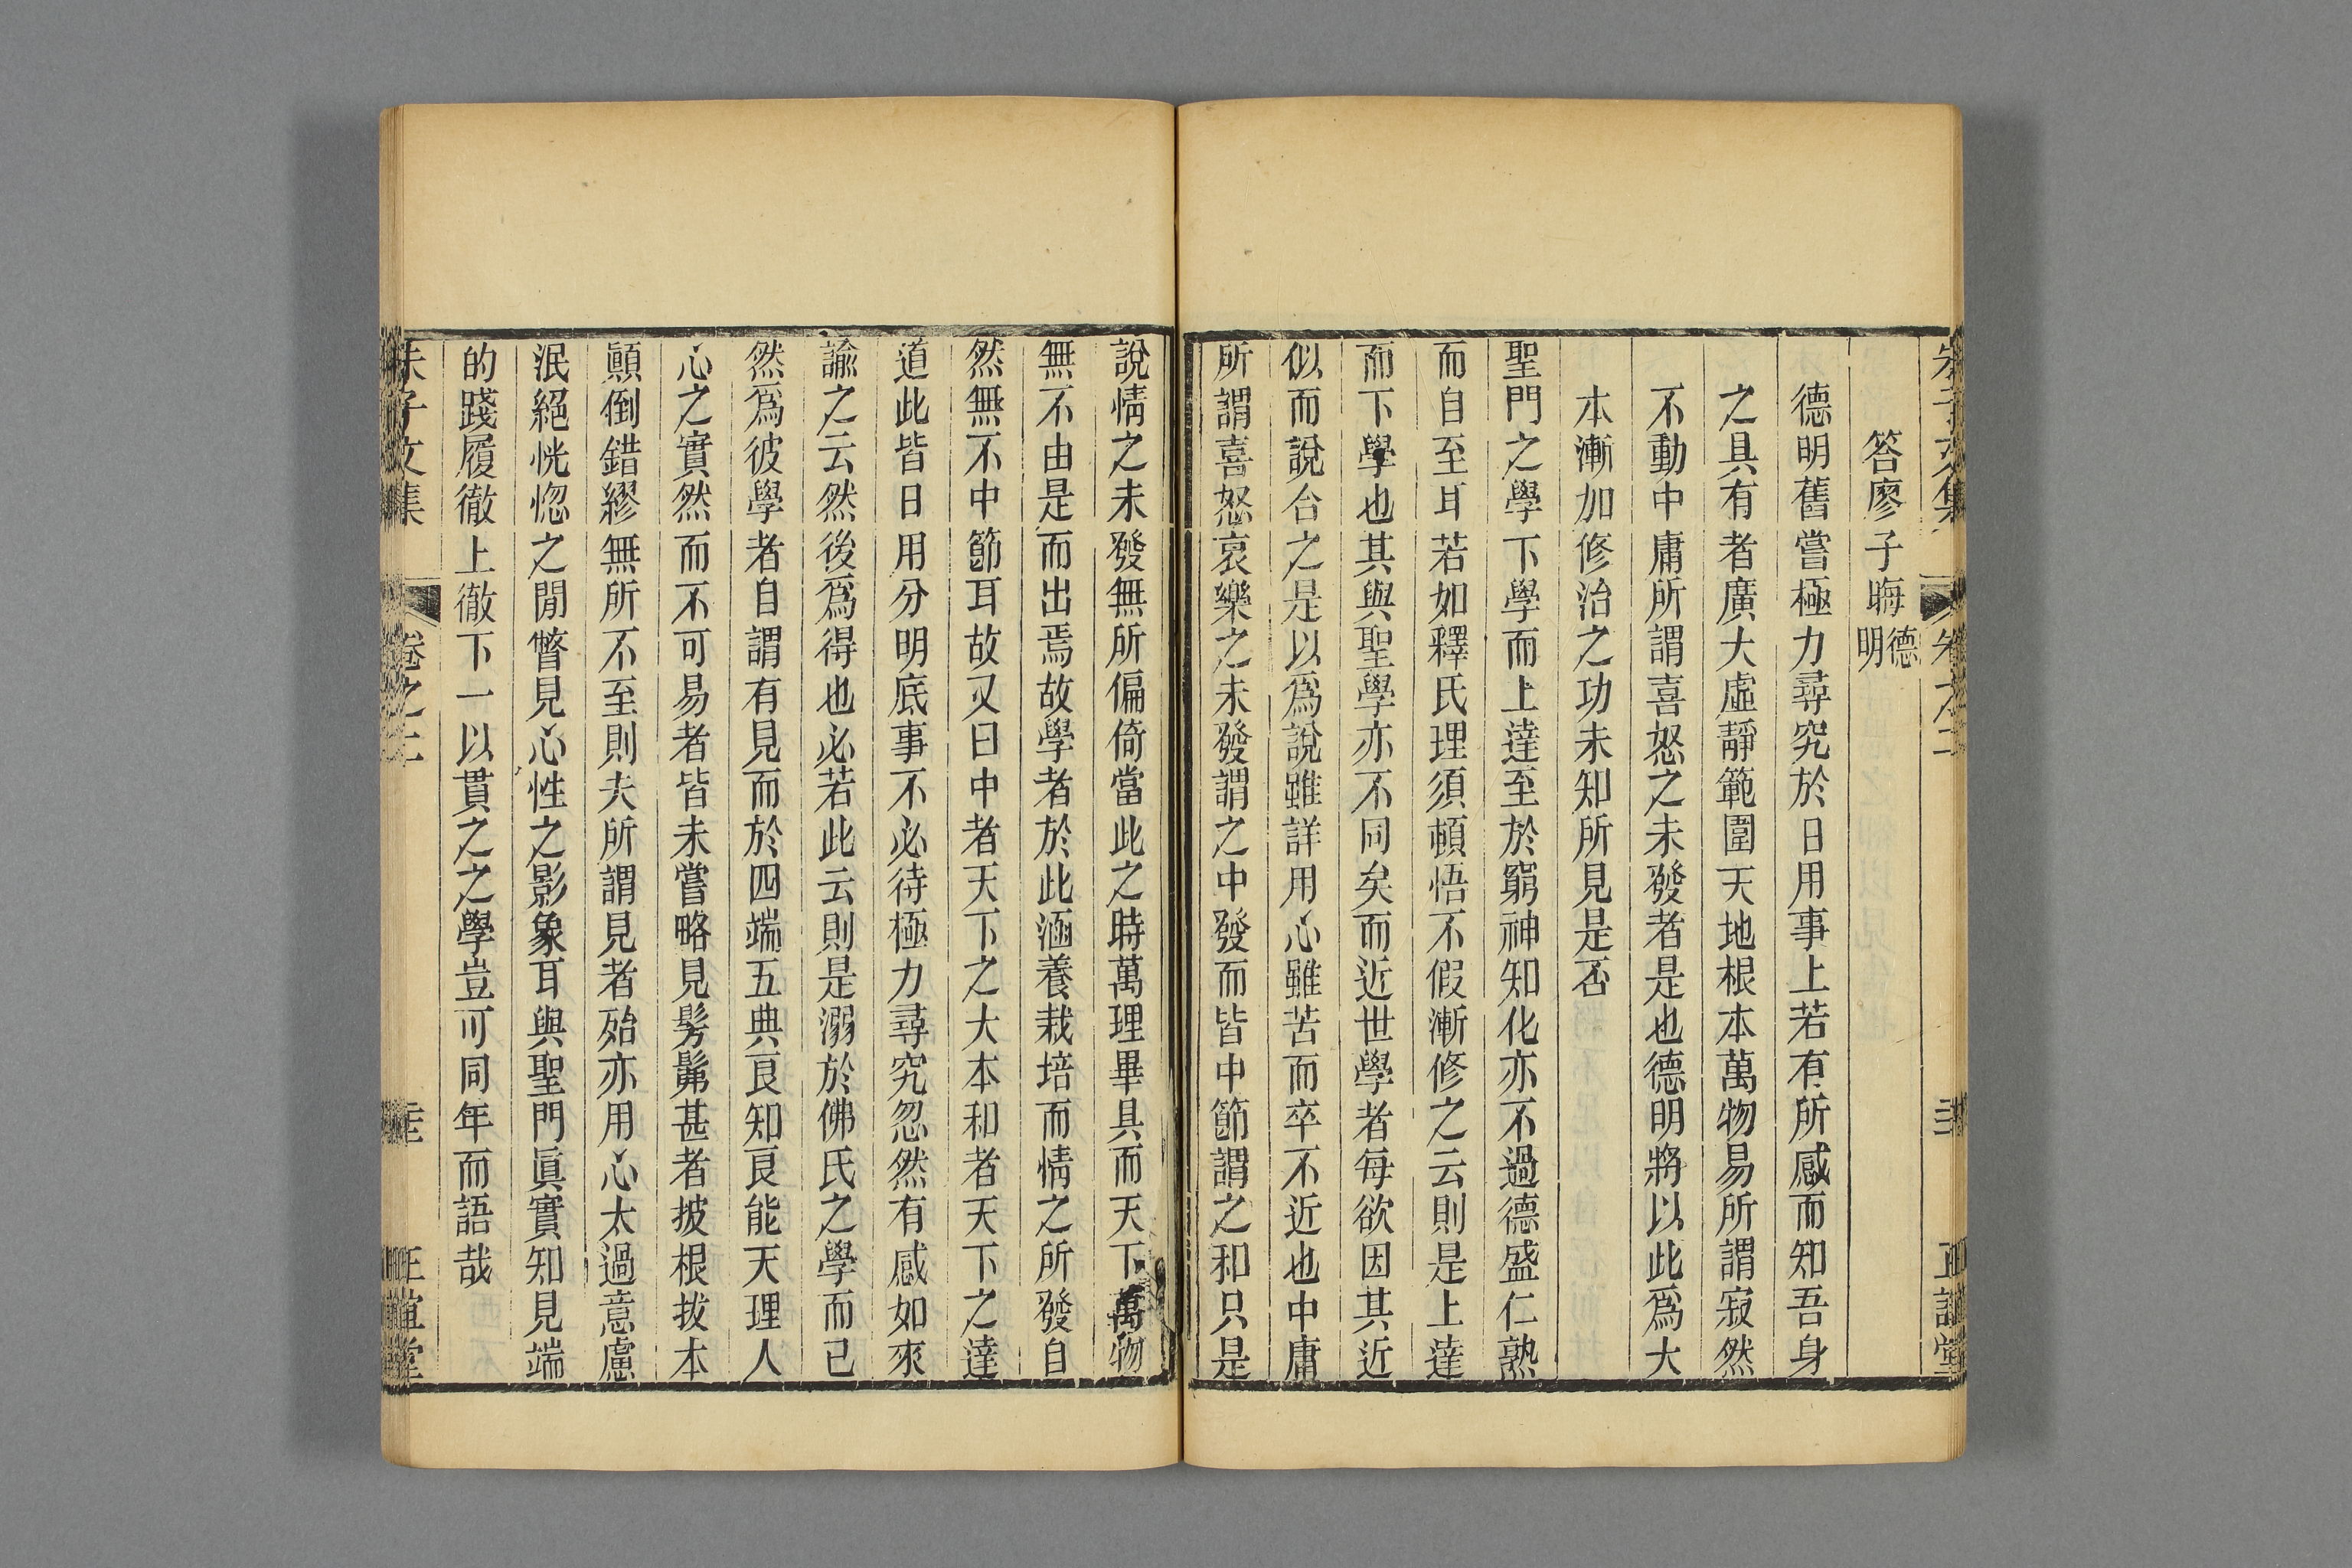 答廖子晦德明
德明舊嘗極力尋究於日用事上若有所感而知吾身
之具有者廣大虛靜範圍天地根本萬物易所謂寂然
不動中庸所謂喜怒之未發者是也德明將以此爲大
本漸加修治之功未知所見是否
聖門之學下學而上達至於窮神知化亦不過德盛仁熟
而自至耳若如釋氏理須頓悟不假漸修之云則是上達
而下學也其與聖學亦不同矣而近世學者每欲因其近
似而說合之是以爲說雖詳用心雖苦而卒不近也中庸
所謂喜怒哀樂之未發謂之中發而皆中節謂之和只是
說情之未發無所偏倚當此之時萬理畢具而天下萬物
無不由是而出焉故學者於此涵養栽培而情之所發自
然無不中節耳故又曰中者天下之大本和者天下之達
道此皆日用分明底事不必待極力尋究忽然有感如來
諭之云然後爲得也必若此云則是溺於佛氏之學而已
然爲彼學者自謂有見而於四端五典良知良能天理人
心之實然而不可易者皆未嘗略見髣髴甚者披根拔本
顚倒錯繆無所不至則夫所謂見者殆亦用心太過意慮
泯絕恍惚之閒瞥見心性之影象耳與聖門眞實知見端
的踐履徹上徹下一以貫之之學豈可同年而語哉
朱子文集
卷之二